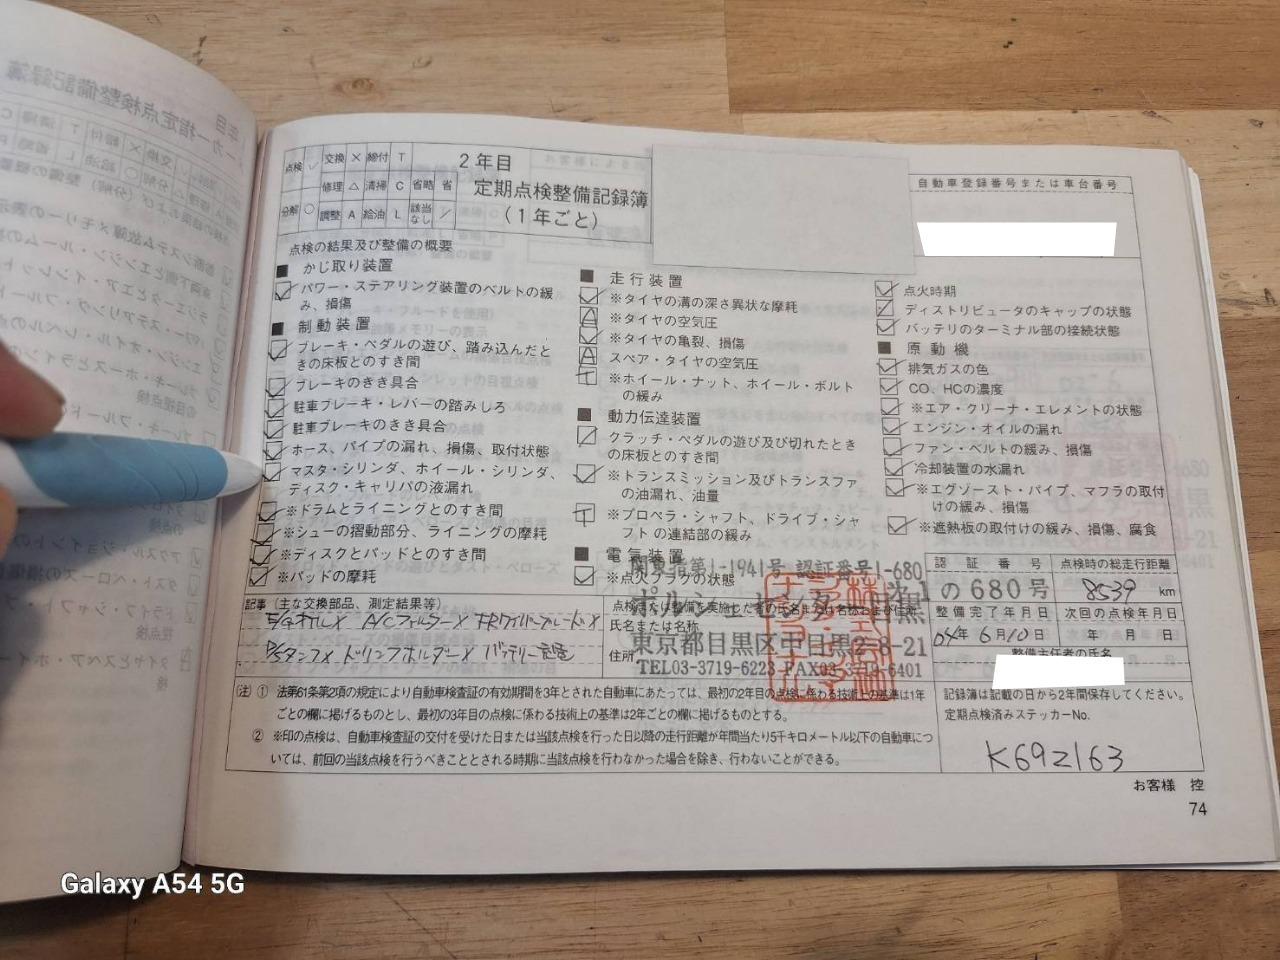 点検 ✓ 交換 × 締付 T
修理 △ 清掃 C 省略 省
分解 ○ 調整 A 給油 L 該当なし /
2年目
定期点検整備記録簿
(1年ごと)
自動車登録番号または車台番号
点検の結果及び整備の概要
■ かじ取り装置
パワー・ステアリング装置のベルトの緩
み、損傷
■ 制動装置
ブレーキ・ペダルの遊び、踏み込んだと
きの床板とのすき間
ブレーキのきき具合
駐車ブレーキ・レバーの踏みしろ
駐車ブレーキのきき具合
ホース、パイプの漏れ、損傷、取付状態
マスタ・シリンダ、ホイール・シリンダ、
ディスク・キャリパの液漏れ
※ドラムとライニングとのすき間
※シューの摺動部分、ライニングの摩耗
※ディスクとパッドとのすき間
※パッドの摩耗
■ 走行装置
※タイヤの溝の深さ異状な摩耗
※タイヤの空気圧
※タイヤの亀裂、損傷
スペア・タイヤの空気圧
※ホイール・ナット、ホイール・ボルト
の緩み
■ 動力伝達装置
クラッチ・ペダルの遊び及び切れたとき
の床板とのすき間
※トランスミッション及びトランスファ
の油漏れ、油量
※プロペラ・シャフト、ドライブ・シャ
フトの連結部の緩み
■ 電気装置
※点火プラグの状態
点火時期
ディストリビュータのキャップの状態
バッテリのターミナル部の接続状態
■ 原動機
排気ガスの色
CO、HCの濃度
※エア・クリーナ・エレメントの状態
エンジン・オイルの漏れ
ファン・ベルトの緩み、損傷
冷却装置の水漏れ
※エグゾースト・パイプ、マフラの取付
けの緩み、損傷
※遮熱板の取付けの緩み、損傷、腐食
記事 (主な交換部品、測定結果等)
E/Gオイルx A/Cフィルターx FRワイパーブレードx
P/Sタンクx ドリンクホルダーx バッテリー充電
関東指第1-1941号 認証番号1-680
点検または整備を実施した者の氏名または名称および住所
氏名または名称
ポルシェセンター目黒
住所
東京都目黒区中目黒2-8-21
TEL03-3719-6223 FAX03-3719-6401
認証番号
1の680号
点検時の総走行距離
8539 km
整備完了年月日
04年6月10日
次回の点検年月日
年 月 日
整備主任者の氏名
記録簿は記載の日から2年間保存してください。
定期点検済みステッカーNo.
K69Z163
(注) ① 法第61条第2項の規定により自動車検査証の有効期間を3年とされた自動車にあたっては、最初の2年目の点検に係わる技術上の基準は1年
ごとの欄に掲げるものとし、最初の3年目の点検に係わる技術上の基準は2年ごとの欄に掲げるものとする。
② ※印の点検は、自動車検査証の交付を受けた日または当該点検を行った日以降の走行距離が年間当たり5千キロメートル以下の自動車につ
いては、前回の当該点検を行うべきこととされる時期に当該点検を行わなかった場合を除き、行わないことができる。
お客様 控
74
Galaxy A54 5G